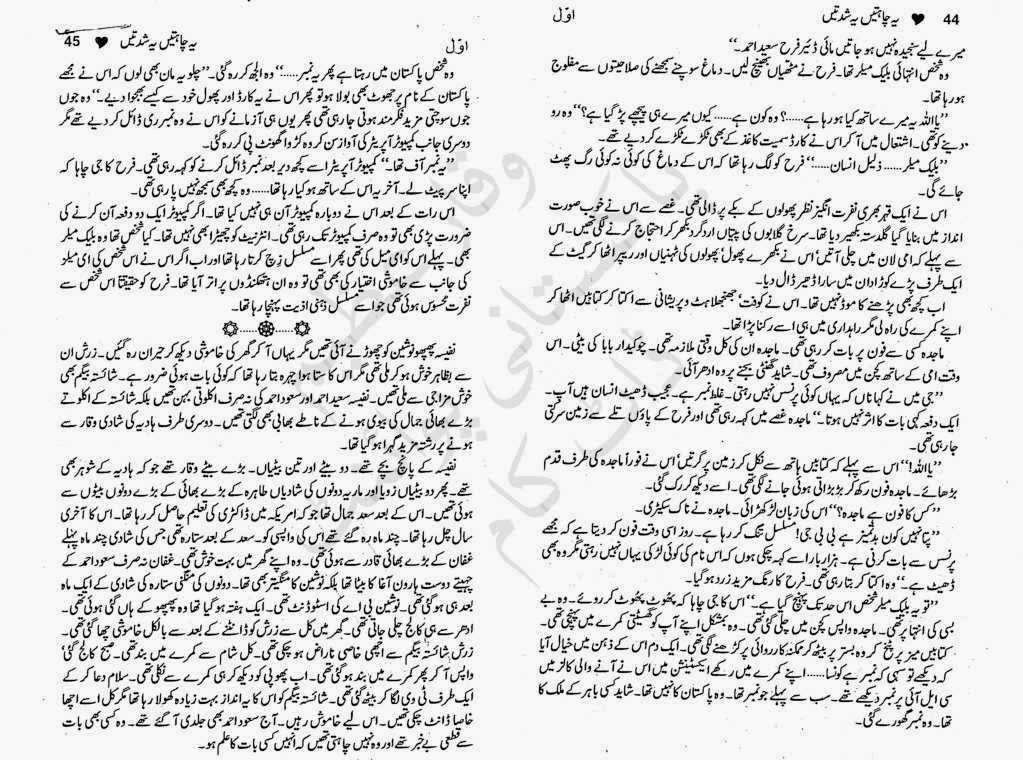 44 ♥ یہ چاہتیں یہ شدتیں
اوّل
میرے لیے سنجیدہ نہیں ہو جاتیں مائی ڈئیر فرح سعید احمد۔‘‘
وہ شخص انتہائی بلیک میلر تھا۔ فرح نے مٹھیاں بھینچ لیں۔ دماغ سوچنے سمجھنے کی صلاحیتوں سے مفلوج
ہو رہا تھا۔
’’یا اللہ یہ میرے ساتھ کیا ہو رہا ہے......؟ وہ کون ہے...... کیوں میرے ہی پیچھے پڑ گیا ہے؟‘‘ وہ رو
دینے کو تھی۔ اشتعال میں آ کر اس نے کارڈ سمیت کاغذ کے بھی ٹکڑے ٹکڑے کر دیے تھے۔
’’بلیک میلر...... ذلیل انسان......‘‘ فرح کو لگ رہا تھا کہ اس کے دماغ کی کوئی نہ کوئی رگ پھٹ
جائے گی۔
اس نے ایک قہر بھری نفرت انگیز نظر پھولوں کے بکے پر ڈالی تھی۔ غصے سے اس نے خوب صورت
انداز میں بنایا گیا گلدستہ بکھیر دیا تھا۔ سرخ گلابوں کی پتیاں اردگرد بکھر کر احتجاج کرنے لگی تھیں۔ اس
سے پہلے کہ امی لان میں چلی آتیں‘ اس نے بکھرے پھول‘ پھولوں کی ٹہنیاں اور ریپر اٹھا کر گیٹ کے
ایک طرف پڑے کوڑا دان میں سارا ڈھیر ڈال دیا۔
اب کچھ بھی پڑھنے کا موڈ نہیں تھا۔ اس نے کوفت‘ جھنجھلاہٹ و پریشانی سے اکتا کر کتابیں اٹھا کر
اپنے کمرے کی راہ لی مگر راہداری میں ہی اسے رکنا پڑا تھا۔
ماجدہ کسی سے فون پر بات کر رہی تھی۔ ماجدہ ان کی کل وقتی ملازمہ تھی۔ چوکیدار بابا کی بیٹی۔ اس
وقت امی کے ساتھ کچن میں مصروف تھی۔ شاید گھنٹی بجنے پر وہ ادھر آئی۔
’’جی میں نے کہا ناں کہ یہاں کوئی پرنس نہیں رہتی۔ غلط نمبر ہے۔ عجیب ڈھیٹ انسان ہیں آپ۔
ایک دفعہ کہی بات کا اثر نہیں ہوتا۔‘‘ ماجدہ غصے میں کہہ رہی تھی اور فرح کے پاؤں تلے سے زمین سرکتی
جا رہی تھی۔
’’یا اللہ!‘‘ اس سے پہلے کہ کتابیں ہاتھ سے نکل کر زمین پر گرتیں‘ اس نے فوراً ماجدہ کی طرف قدم
بڑھائے۔ ماجدہ فون رکھ کر بڑبڑاتی ہوئی جانے لگی تھی۔ اسے دیکھ کر رک گئی۔
’’کس کا فون ہے ماجدہ؟‘‘ اس کی زبان لڑکھڑائی۔ ماجدہ نے ناک سکیڑی۔
’’پتا نہیں کون بدتمیز ہے بی بی جی! مسلسل تنگ کر رہا ہے۔ روز اسی وقت فون کر دیتا ہے کہ مجھے
پرنس سے بات کرنی ہے۔ ہزار بار اسے کہہ چکی ہوں کہ اس نام کی کوئی لڑکی یہاں نہیں رہتی مگر وہ بھی
ڈھیٹ ہے۔‘‘ وہ اکتا کر بتا رہی تھی۔ فرح کا رنگ مزید زرد ہو گیا۔
’’تو یہ بلیک میلر شخص اس حد تک پہنچ گیا ہے۔‘‘ اس کا جی چاہا کہ پھوٹ پھوٹ کر روئے۔ وہ بے
بسی کی انتہا پر تھی۔ ماجدہ واپس کچن میں چلی گئی تھی۔ وہ بمشکل اپنے آپ کو گھسیٹتی کمرے میں پہنچی تھی۔
کتابیں میز پر پٹخ کر وہ بستر پر بیٹھ کر ممکنہ کارروائی پر کڑھنے لگی تھی۔ ایک دم اس کے ذہن میں خیال آیا
کہ دیکھے تو سہی کہ نمبر ہے کونسا...... اپنے کمرے میں رکھے ایکسٹینشن میں اس نے آنے والی کالز میں
سی ایل آئی پر نمبر دیکھے تھے۔ سب سے پہلے جو نمبر تھا۔ وہ پاکستان کا نہیں تھا۔ شاید کسی باہر کے ملک کا
تھا۔ وہ نمبر گھورے گئی۔
یہ چاہتیں یہ شدتیں ♥ 45
اوّل
وہ شخص پاکستان میں رہتا ہے پھر یہ نمبر......‘‘ وہ الجھ کر رہ گئی۔ ’’چلو یہ مان بھی لوں کہ اس نے مجھے
پاکستان کے نام پر جھوٹ بھی بولا ہو تو پھر اس نے یہ کارڈ اور پھول خود سے کیسے بھجوا دیے۔‘‘ وہ جوں
جوں سوچتی مزید فکرمند ہوتی جا رہی تھی پھر یوں ہی آزمانے کو اس نے وہ نمبر ری ڈائل کر دیے تھے مگر
دوسری جانب کمپیوٹر آپریٹر کی آواز سن کر وہ کڑوا گھونٹ پی کر رہ گئی۔
’’یہ نمبر آف تھا۔‘‘ کمپیوٹر آپریٹر اسے کچھ دیر بعد نمبر ڈائل کرنے کو کہہ رہی تھی۔ فرح کا جی چاہا کہ
اپنا سر پیٹ لے۔ آخر یہ اس کے ساتھ ہو کیا رہا تھا...... وہ کچھ بھی سمجھ نہیں پا رہی تھی۔
اس رات کے بعد اس نے دوبارہ کمپیوٹر آن ہی نہیں کیا تھا۔ اگر کمپیوٹر ایک دو دفعہ آن کرنے کی
ضرورت پڑی بھی تو وہ صرف کمپیوٹر تک رہی تھی۔ انٹرنیٹ کو چھیڑا بھی نہیں تھا۔ کیا شخص تھا وہ بلیک میلر
بھی۔ پہلے اس کو ای میل کی تھی پھر اسے مسلسل زچ کرتا رہا تھا اور اب اگر اس نے اس شخص کی ای میلز
کی جانب سے خاموشی اختیار کی بھی تھی تو وہ ان ہتھکنڈوں پر اتر آیا تھا۔ فرح کو حقیقتاً اس شخص سے
نفرت محسوس ہوئی تھی جو اسے مسلسل ذہنی اذیت پہنچا رہا تھا۔
نفیسہ پھپھو نوشین کو چھوڑنے آئی تھیں مگر یہاں آ کر گھر کی خاموشی دیکھ کر حیران رہ گئیں۔ زرش ان
سے بظاہر خوش ہو کر ملی تھی مگر اس کا ستا ہوا چہرہ بتا رہا تھا کہ کوئی بات ہوئی ضرور ہے۔ شائستہ بیگم بھی
خوش مزاجی سے ملی تھیں۔ نفیسہ سعید احمد اور مسعود احمد کی نہ صرف اکلوتی بہن تھیں بلکہ شائستہ کے اکلوتے
بڑے بھائی جمال کی بیوی ہونے کے ناطے بھابی بھی لگتی تھیں۔ دوسری طرف ہادیہ کی شادی وقار سے
ہونے پر رشتہ مزید گہرا ہو گیا تھا۔
نفیسہ کے پانچ بچے تھے۔ دو بیٹے اور تین بیٹیاں۔ بڑے بیٹے وقار تھے جو کہ ہادیہ کے شوہر بھی
تھے۔ پھر دو بیٹیاں زوبا اور ماریہ دونوں کی شادیاں طاہرہ کے بڑے بھائی کے بڑے دونوں بیٹوں سے
ہوئی تھیں۔ اس کے بعد سعد جمال تھا جو کہ امریکہ میں ڈاکٹری کی تعلیم حاصل کر رہا تھا۔ اس کا آخری
سال چل رہا تھا۔ چند ماہ رہ گئے تھے اس کی واپسی کو۔ سعد کے بعد ستارہ تھی جس کی شادی چند ماہ پہلے
غفان کے بڑے بھائی قادر سے ہوئی تھی۔ وہ اپنے گھر میں بہت خوش تھی۔ غفان نہ صرف مسعود احمد کے
چہیتے دوست ہارون آغا کا بیٹا تھا بلکہ نوشین کا منگیتر بھی تھا۔ دونوں کی منگنی ستارہ کی شادی کے ایک ماہ
بعد ہی ہو گئی تھی۔ نوشین بی اے کی اسٹوڈنٹ تھی۔ ایک ہفتہ ہو گیا تھا وہ پھپھو کے ہاں گئی ہوئی تھی۔
ادھر سے ہی کالج چلی جاتی تھی۔ گھر میں کل سے زرش کو ڈانٹنے کے بعد سے بالکل خاموشی چھا گئی تھی۔
زرش‘ شائستہ بیگم سے اچھی خاصی ناراض ہو چکی تھی۔ کل شام سے کمرے میں بند تھی۔ صبح کالج گئی‘
واپس آ کر پھر کمرے میں بند ہو گئی تھی۔ اب پھوپی کو دیکھ کر ہی کمرے سے نکلی تھی۔ سلام دعا کر کے
ایک طرف ٹی وی لگا کر بیٹھ گئی تھی۔ شائستہ بیگم کو اس کا یہ انداز بہت زیادہ کھولا رہا تھا مگر کل اسے اچھا
خاصا ڈانٹ چکی تھیں۔ اس لیے خاموش رہیں۔ آج سعود احمد بھی جلدی آ گئے تھے۔ وہ کسی بھی بات
سے قطعی بے خبر تھے اور وہ نہیں چاہتی تھیں کہ انہیں کسی بات کا علم ہو۔